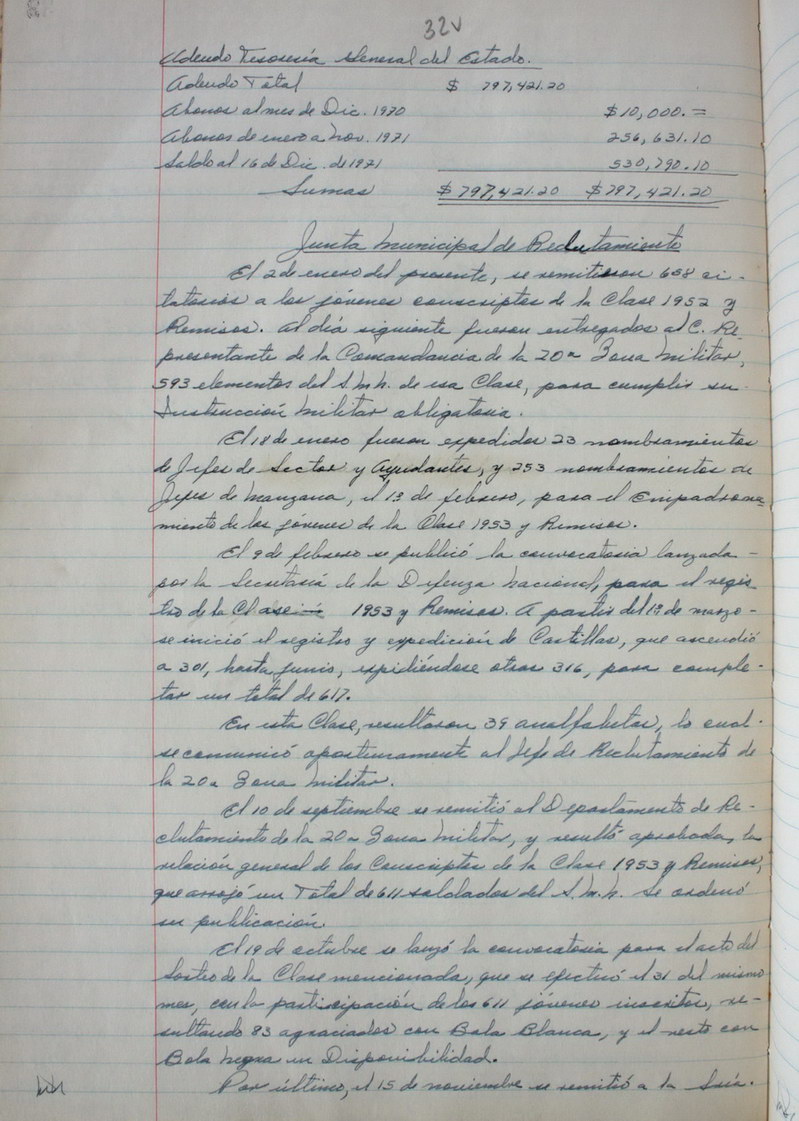 32v
Adeudo Tesorería General del Estado.
Adeudo Total $ 797,421.20
Abonos al mes de Dic. 1970 $10,000.=
Abonos de enero a Nov. 1971 256,631.10
Saldo al 16 de Dic. de 1971 530,790.10
Sumas $797,421.20 $797,421.20
Junta Municipal de Reclutamiento
El 2 de enero del presente, se remitieron 658 ci-
tatorios a los jóvenes conscriptos de la Clase 1952 y
Remisos. Al día siguiente fueron entregados al C. Re-
presentante de la Comandancia de la 20a Zona Militar,
593 elementos del S.M.N. de esa Clase, para cumplir su
Instrucción Militar obligatoria.
El 18 de enero fueron expedidos 23 nombramientos
de Jefes de Sector y Ayudantes, y 253 nombramientos de
Jefes de Manzana, el 13 de febrero, para el Empadrona-
miento de los jóvenes de la Clase 1953 y Remisos.
El 9 de febrero se publicó la convocatoria lanzada -
por la Secretaría de la Defenza Nacional, para el regis-
tro de la Clase 1953 y Remisos. A partir del 1º de marzo -
se inició el registro y expedición de Cartillas, que ascendió
a 301, hasta junio, expidiéndose otras 316, para comple-
tar un total de 617.
En esta Clase, resultaron 39 analfabetas, lo cual -
se comunicó oportunamente al Jefe de Reclutamiento de
la 20a Zona Militar.
El 10 de septiembre se remitió al Departamento de Re-
clutamiento de la 20a Zona Militar, y resultó aprobada, la
relación general de los Conscriptos de la Clase 1953 y Remisos,
que arrojó un Total de 611 soldados del S.M.N. Se ordenó
su publicación.
El 19 de octubre se lanzó la convocatoria para el acto del
Sorteo de la Clase mencionada, que se efectuó el 31 del mismo
mes, con la participación de los 611 jóvenes inscritos, re-
sultando 83 agraciados con Bola Blanca, y el resto con
Bola Negra en Disponibilidad.
Por último, el 15 de noviembre se remitió a la Sría.